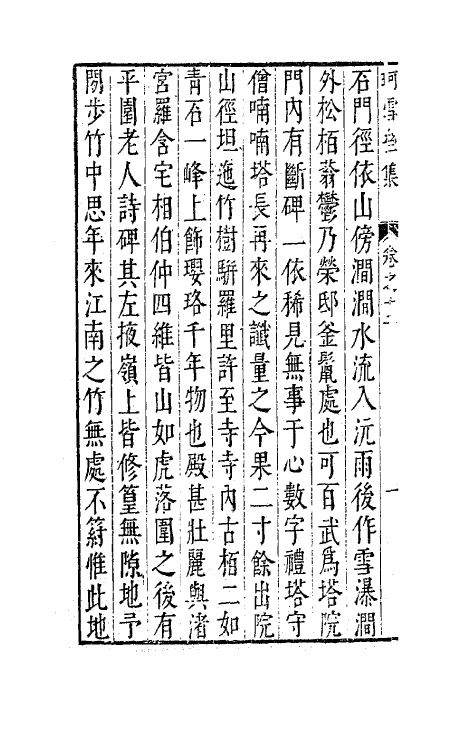 珂雪齋集 卷之十二 一
石門徑依山傍澗澗水流入沅雨後作雪瀑澗
外松栢蓊鬱乃榮邸釜鬵處也可百武爲塔院
門內有斷碑一依稀見無事于心數字禮塔守
僧喃喃塔長再來之讖量之今果二寸餘出院
山徑坦迤竹樹駢羅里許至寺寺內古栢二如
青石一峰上飾瓔珞千年物也殿甚壯麗與渚
宮羅含宅相伯仲四維皆山如虎落圍之後有
平圃老人詩碑其左掖嶺上皆修篁無隙地予
閒步竹中思年來江南之竹無處不䈟惟此地